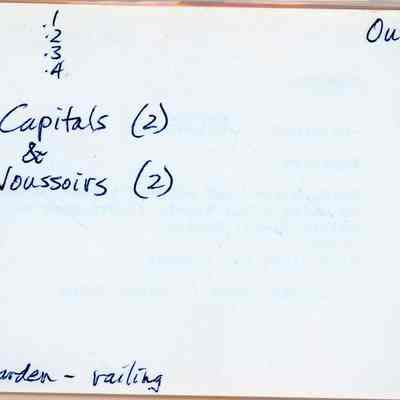 .1
.2
.3
.4
Ou
Capitals (2)
&
Voussoirs (2)
arden - railing